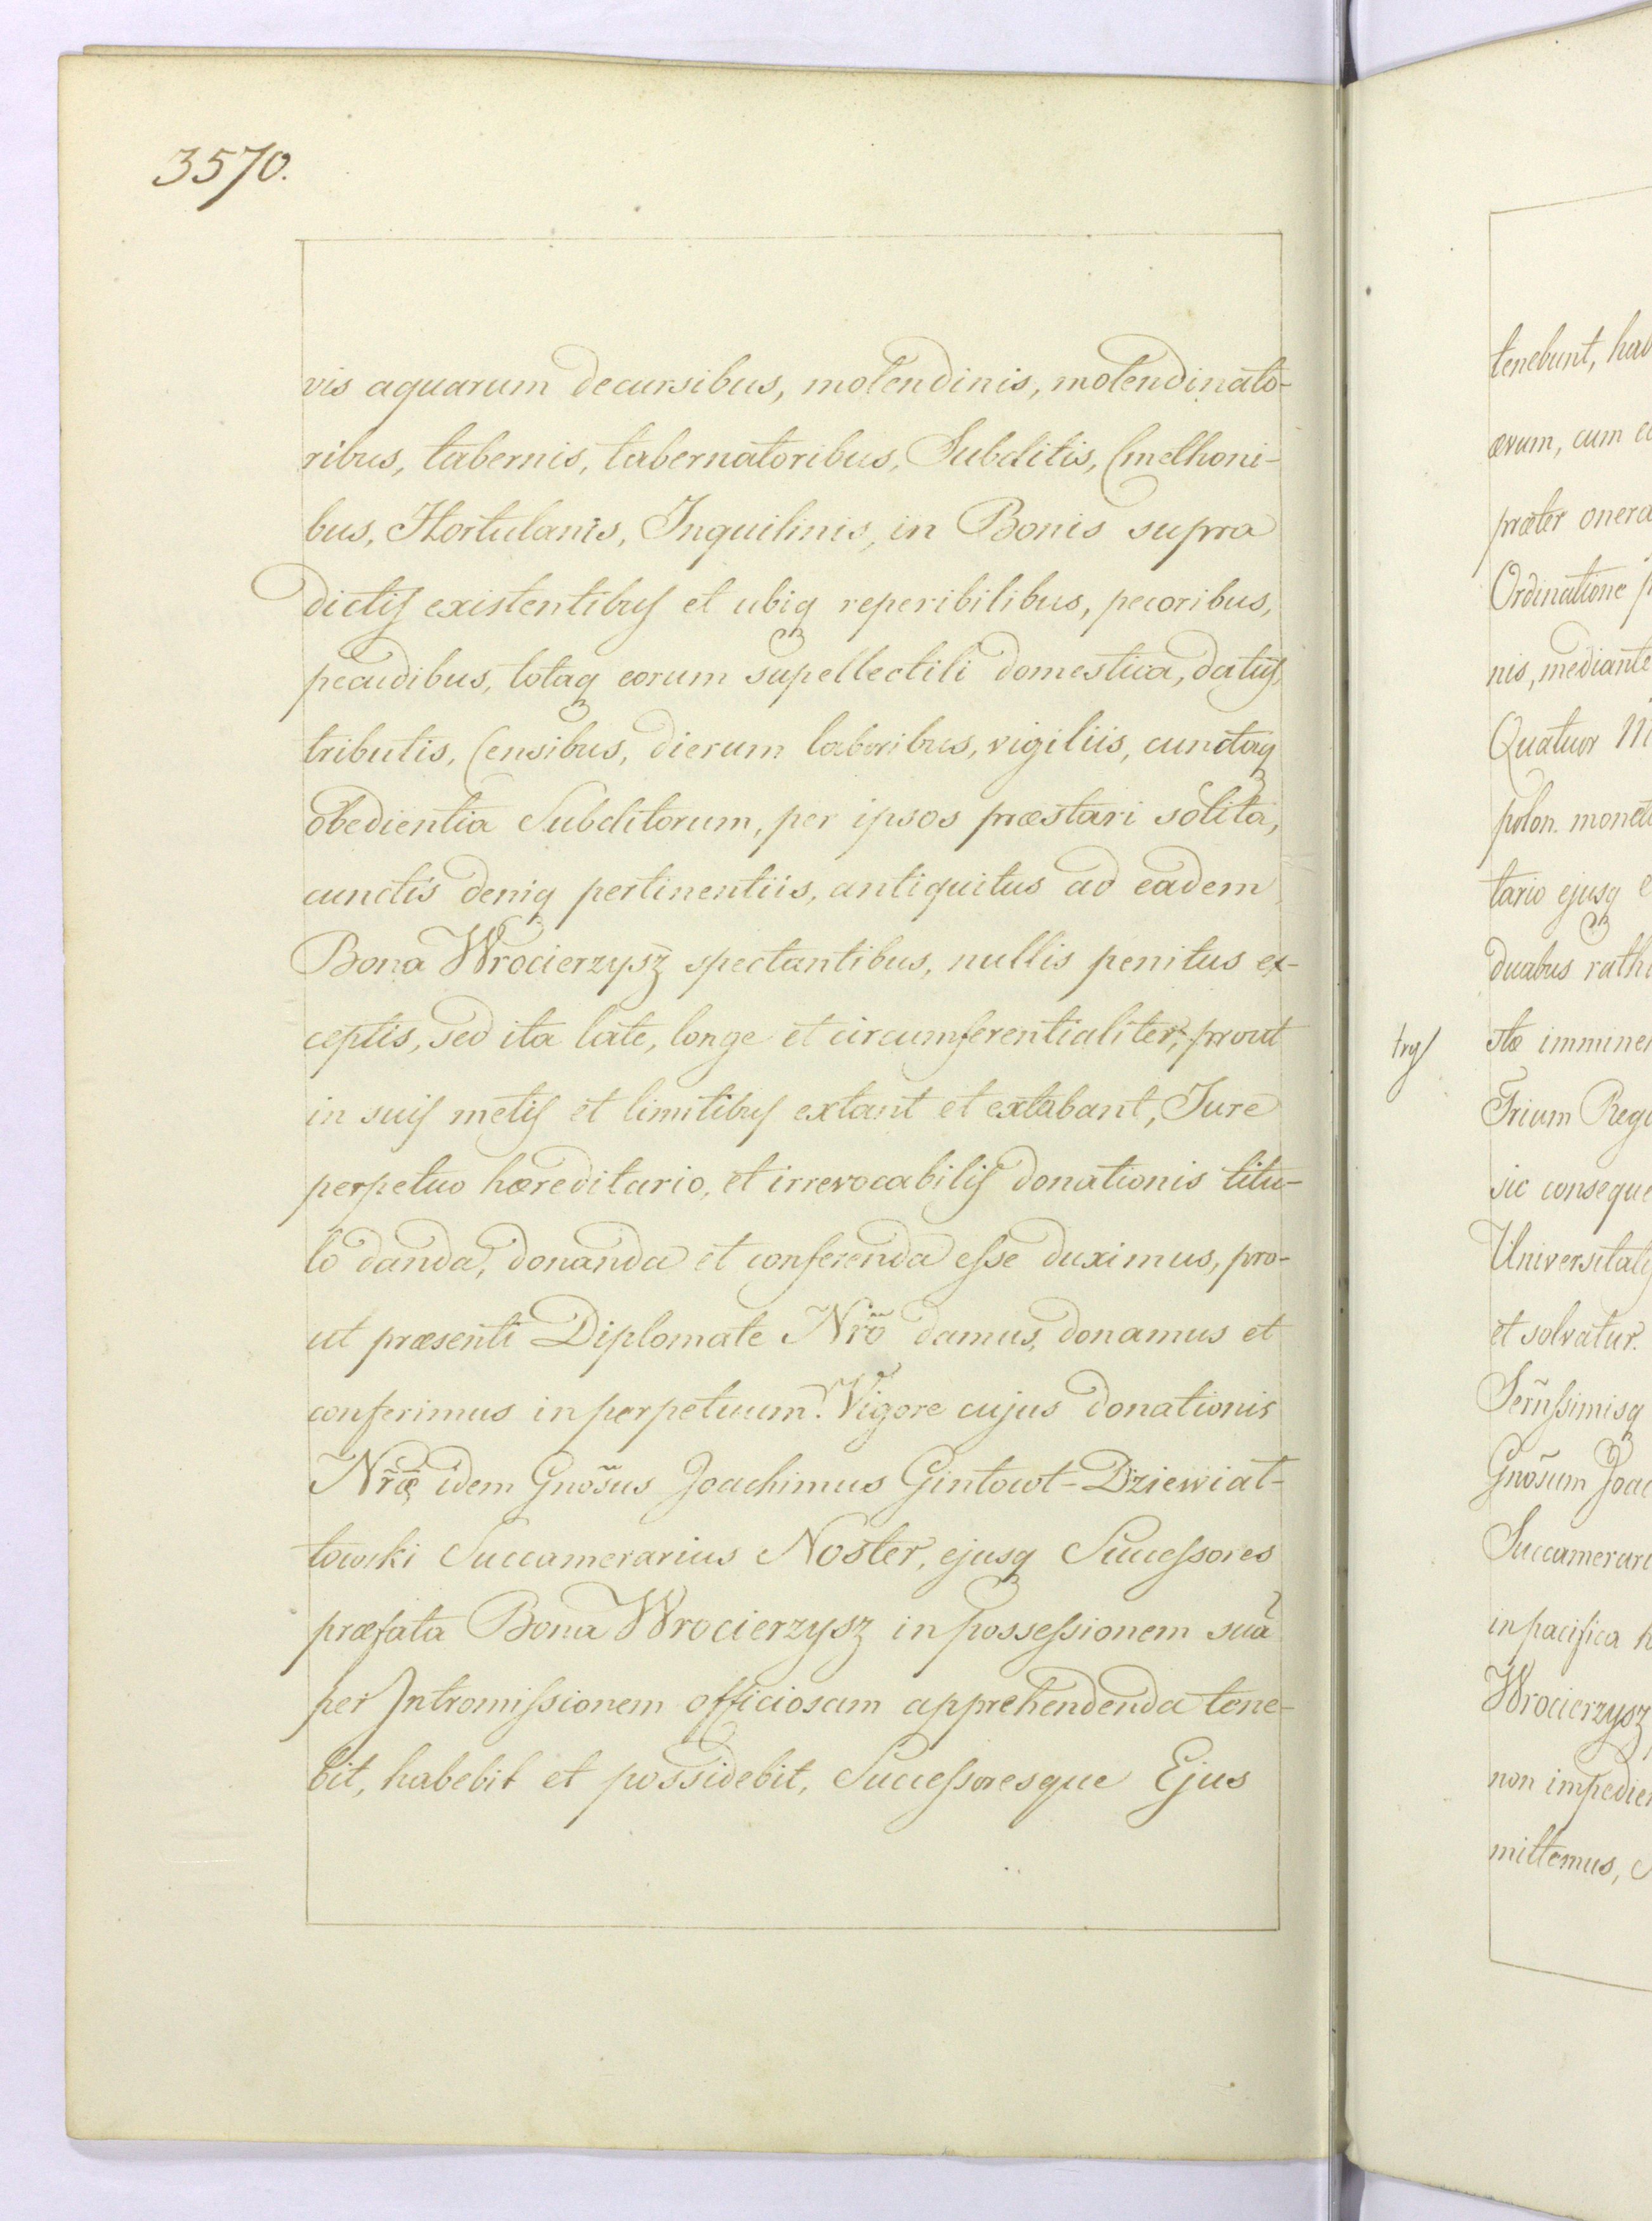 3570.
vis aquarum decursibus, molendinis, molendinato-
ribus, tabernis, tabernatoribus, Subditis, Cmethoni-
bus, Hortulanis, Inquilinis, in Bonis supra
dictis existentibus et ubiq reperibilibus, pecoribus,
pecudibus, totaq eorum supellectili domestica, datiis,
tributis, Censibus, dierum laboribus, vigiliis, cunctaq
obedientia Subditorum, per ipsos præstari solita,
cunctis deniq pertinentiis, antiquitus ad eadem
Bona Wrocierzysz spectantibus, nullis penitus ex-
ceptis, sed ita late, longe et circumferentialiter, prout
in suis metis et limitibus extant et extabant, Jure
perpetuo hæreditario, et irrevocabilis donationis titu-
lo danda, donanda et conferenda esse duximus, pro-
ut præsenti Diplomate Nr̃o damus, donamus et
conferimus in perpetuum. Vigore cujus donationis
Nr̃æ idem Gnosũs Joachimus Gintowt-Dziewiat-
towski Succamerarius Noster, ejusq Successores
præfata Bona Wrocierzysz in possessionem suã
per Intromissionem officiosam apprehendenda tene-
bit, habebit et possidebit, Successoresque Ejus
tenebunt, hab
ævum, cum
præter onera
Ordinatione
nis, mediante
Quatuor
polon. monet
tario ejusq
duabus rath
trg/
stæ imminen
Trium Reg
sic conseque
Universitatis
et solvatur.
Serñssimisq
Gnosũm Joac
Succamerar
in pacifica
Wrocierzysz
non impedie
mittemus,